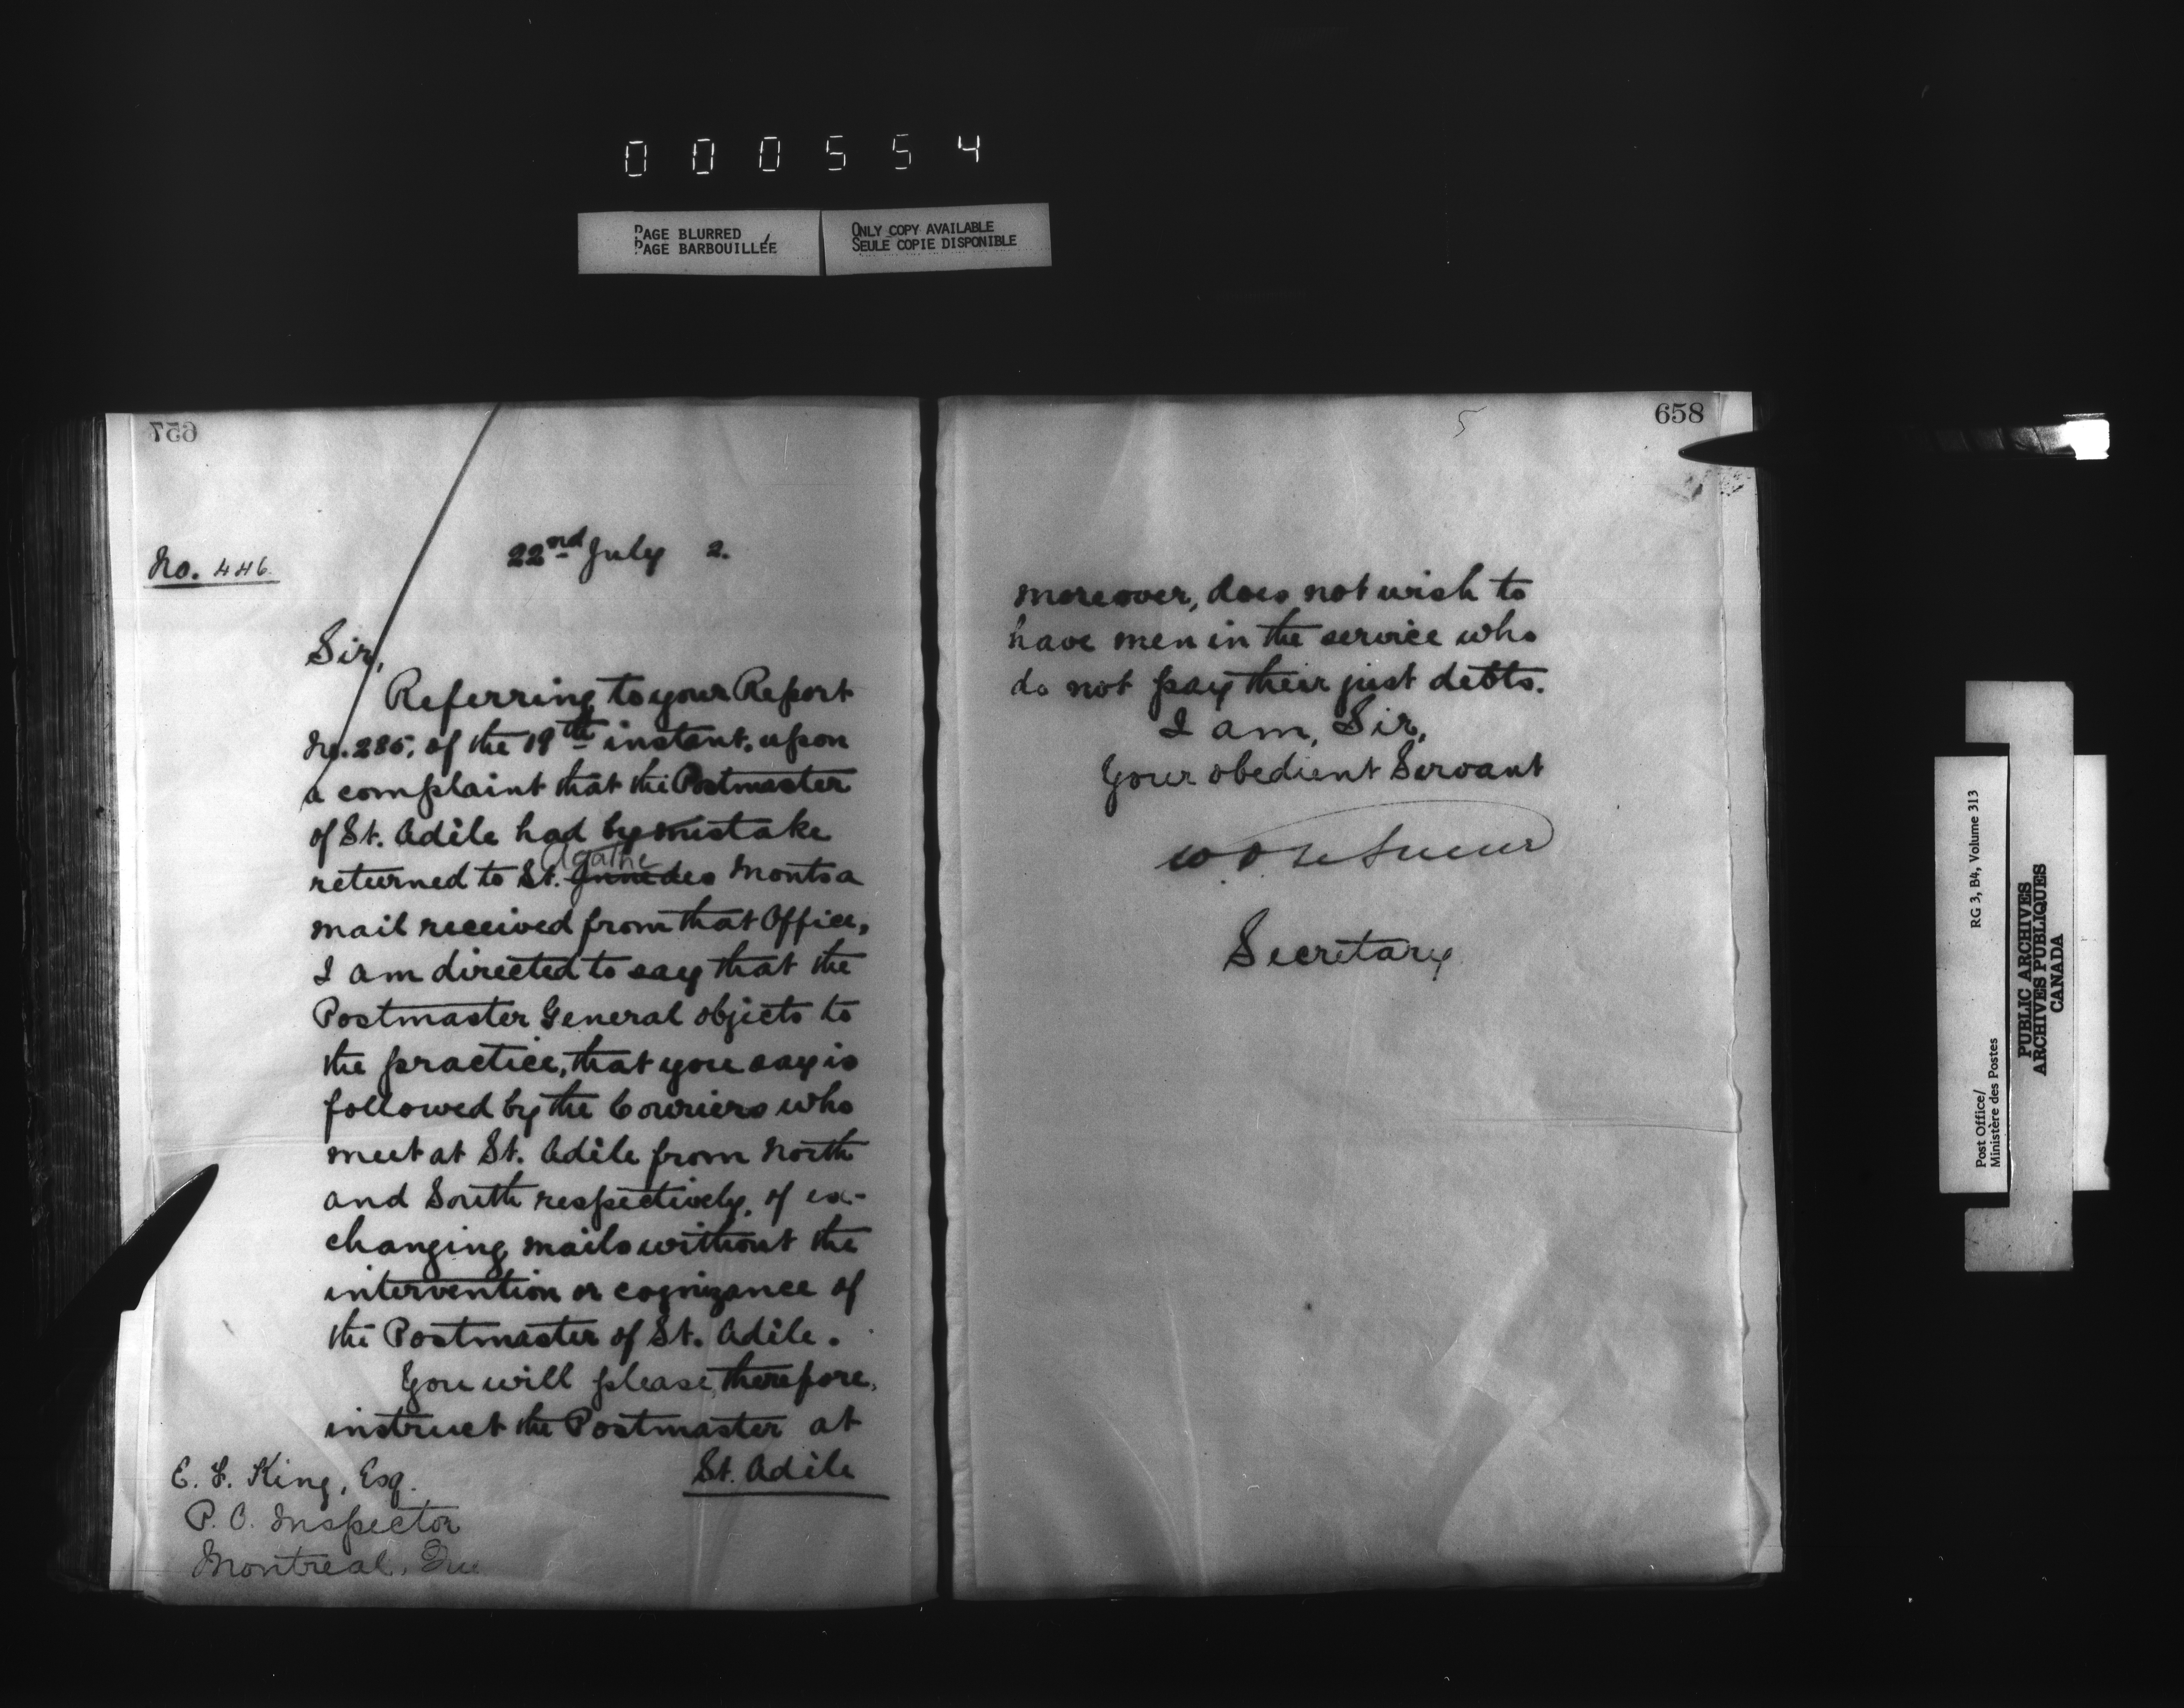 000554
PAGE BLURRED
PAGE BARBOUILLÉE
ONLY COPY AVAILABLE
SEULE COPIE DISPONIBLE
657
No. 446
22nd July 2.
Sir,
Referring to your Report
No. 285, of the 19th instant, upon
a complaint that the Postmaster
of St. Adèle had by mistake
Agathe
returned to St. des Monts a
mail received from that Office,
I am directed to say that the
Postmaster General objects to
the practice, that you say is
followed by the Couriers who
meet at St. Adèle from North
and South respectively, of ex-
changing mails without the
intervention or cognizance of
the Postmaster of St. Adèle.
You will please, therefore,
instruct the Postmaster at
St. Adèle
E. F. King, Esq.
P. O. Inspector
Montreal, Que
5
658
moreover, does not wish to
have men in the service who
do not pay their just debts.
I am, Sir,
Your obedient Servant
W. D. LeSueur
Secretary
Post Office/
Ministère des Postes
RG 3, B4, Volume 313
PUBLIC ARCHIVES
ARCHIVES PUBLIQUES
CANADA